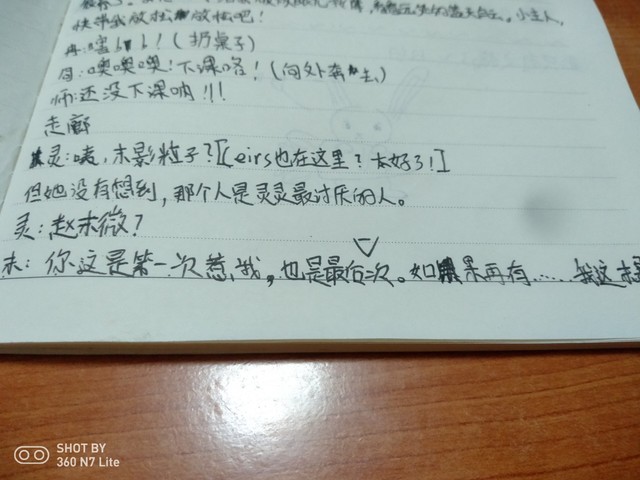 快带我放松放松吧！
冉:啥bbb！(扔桌子)
同:噢噢噢！下课咯！(向外奔去)
师:还没下课呐!!!
走廊
灵:咦,末影粒子？[[eirs也在这里？太好了！]
但她没有想到,那个人是灵灵最讨厌的人。
灵:赵未微？
未:你这是第一次惹我,也是最后次。如果再有……我这
SHOT BY
360 N7 Lite